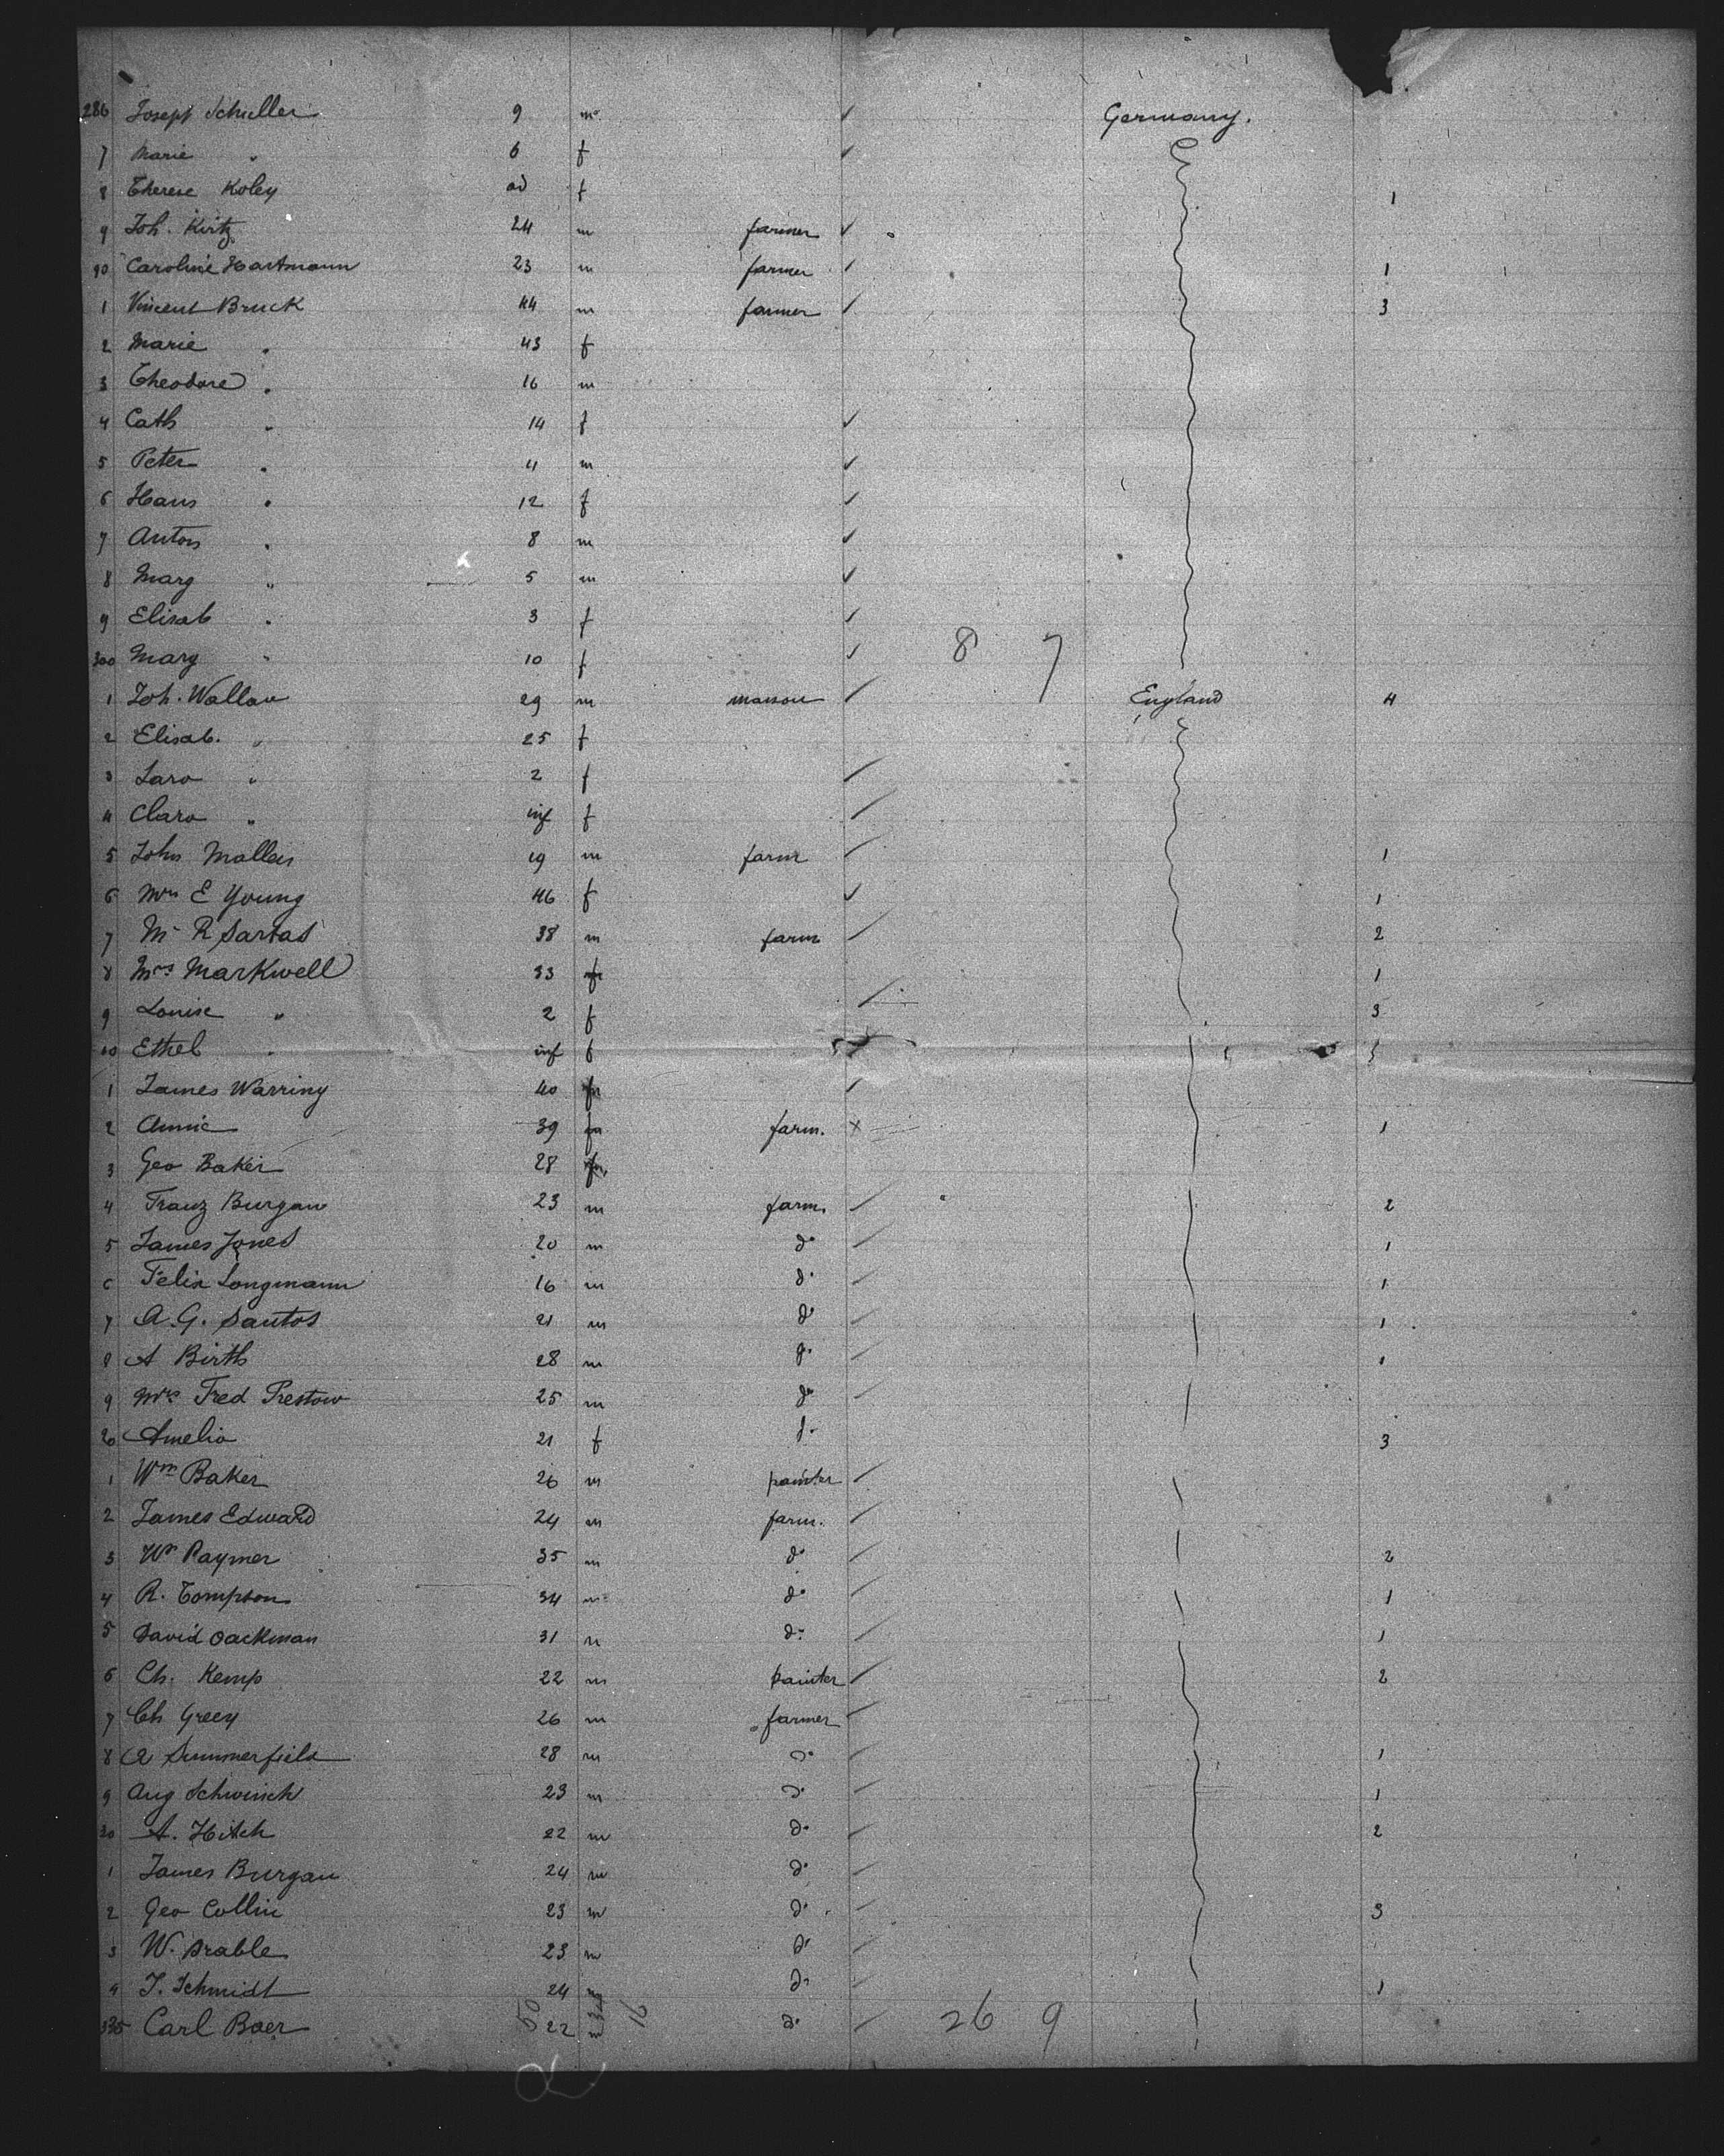 286 Joseph Schuller 9 m ✓ Germany.
7 Marie " 6 f ✓
8 Therese Koley ad f 1
9 Joh. Kirtz 24 m farmer ✓
90 Caroline Hartmann 23 m farmer ✓ 1
1 Vincent Bruck 44 m farmer ✓ 3
2 Marie " 43 f
3 Theodore " 16 m
4 Cath " 14 f ✓
5 Peter " 11 m ✓
6 Hans " 12 f ✓
7 Anton " 8 m ✓
8 Marg " 5 m ✓
9 Elisab " 3 f ✓
300 Marg " 10 f ✓ 8 7
1 Joh. Wallau 29 m mason / England 4
2 Elisab. " 25 f
3 Lara " 2 f /
4 Clara " inf f /
5 John 19 m farm / 1
6 Mrs E Young 46 f ✓ 1
7 Mr R 38 m farm / 2
8 Mrs Markwell 33 f 1
9 Louise " 2 f / 3
10 Ethel " inf f /
1 James Warriny 40 /
2 Annie 39 farm. x 1
3 Geo Baker 28
4 Franz Burgau 23 m farm. / 2
5 James Jones 20 m do / 1
6 Felix Longmann 16 m do / 1
7 A. G. Santos 21 m do / 1
8 A Birth 28 m do / 1
9 Mrs Fred Prestow 25 m do /
20 Amelia 21 f 3
1 Wm Baker 26 m painter /
2 James Edward 24 m farm. /
3 Wm Raymer 35 m do / 2
4 R. Tompson 34 m do / 1
5 David Oackman 31 m do / 1
6 Ch. Kemp 22 m painter / 2
7 Ch Greey 26 m farmer /
8 A Summerfield 28 m do / 1
9 Aug Schwinch 23 m do / 1
30 A. Hitch 22 m do / 2
1 James Burgau 24 m do /
2 Geo Collin 23 m do / 3
3 W. Drable 23 m do /
4 J. Schmidt 24 m do / 1
335 Carl Boer 22 m do / 26 9
50